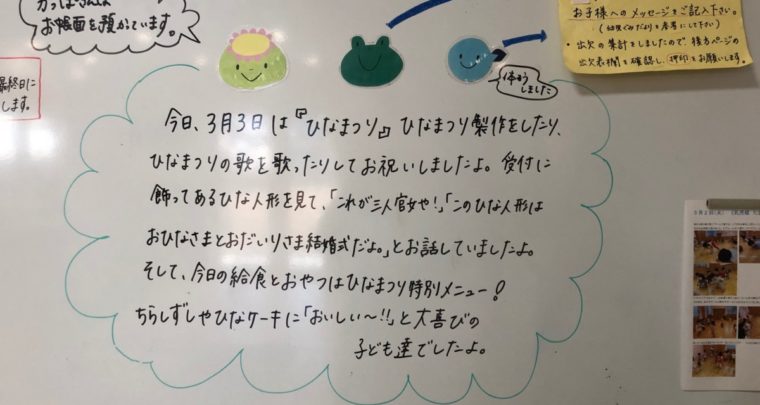 お帳面を預かています。
最終日に
します。
お子様へのメッセージをご記入下さい。
・出欠の集計をしましたので、後方ページの
出欠表欄を確認し、押印をお願いします。
しました
今日、3月3日は『ひなまつり』ひなまつり製作をしたり、
ひなまつりの歌を歌ったりしてお祝いしましたよ。受付に
飾ってあるひな人形を見て、「これが三人官女や!」「このひな人形は
おひなさまとおだいりさま結婚式だよ。」とお話していましたよ。
そして、今日の給食とおやつはひなまつり特別メニュー!
ちらしずしやひなケーキに「おいしい〜!!」と大喜びの
子ども達でしたよ。